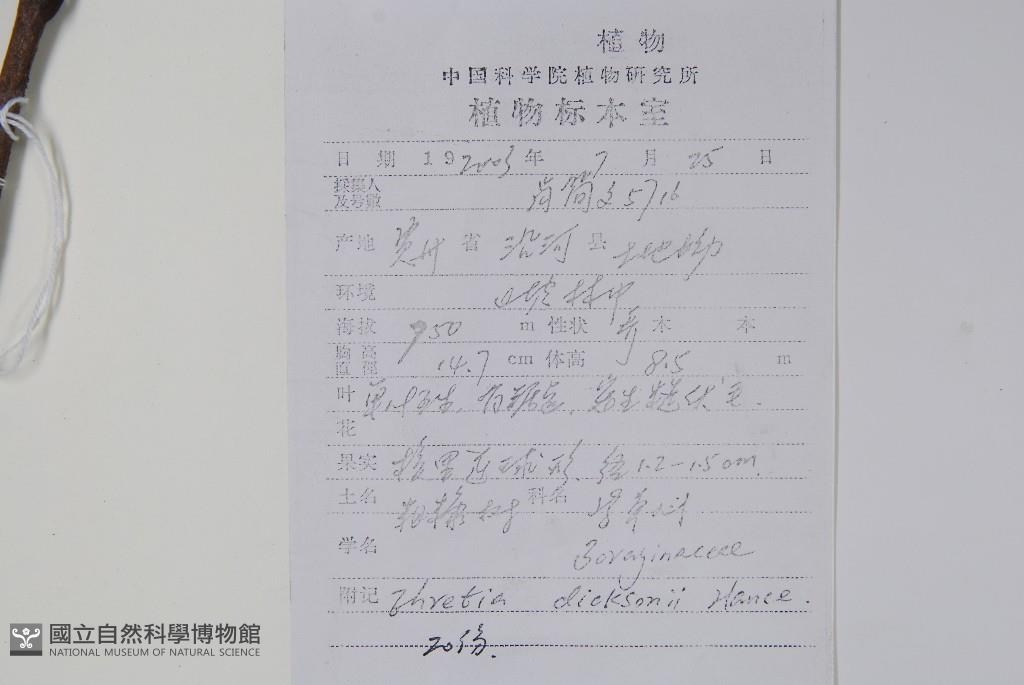 植物
中国科学院植物研究所
植物标本室
日期 19 2003 年 7 月 25 日
採集人
及号数 尚简文 5716
产地 贵州 省 沿河 县
环境 山坡林中
海拔 950 m 性状 乔木 本
胸高
直径 14.7 cm 体高 8.5 m
叶 单叶互生,有锯齿,
花
果实 球形 径 1.2-1.5cm
土名 科名 紫草科
学名 Boraginaceae
附记 Ehretia dicksonii Hance.
20份.
國立自然科學博物館
NATIONAL MUSEUM OF NATURAL SCIENCE